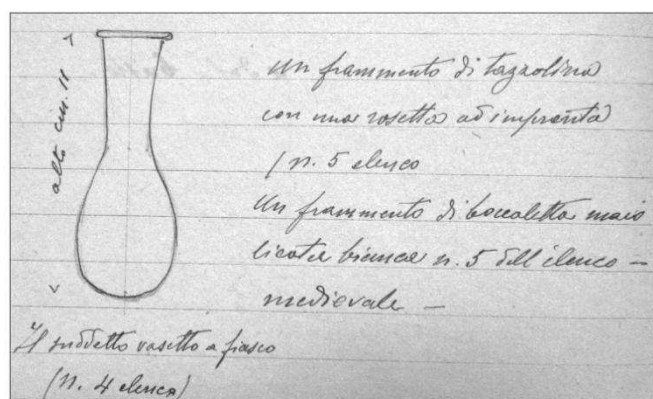 alto cm. 11
un frammento di tazzolina
con una rosetta ad impronta
(n. 5 elenco
Un frammento di boccaletto maio
licato bianca n. 5 dell'elenco –
medievale –
Il suddetto vasetto a fiasco
(n. 4 elenco)